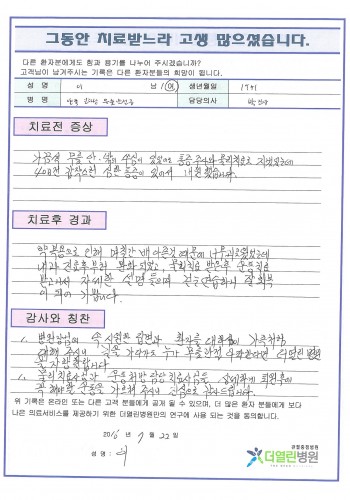 그동안 치료받느라 고생 많으셨습니다.
다른 환자분에게도 힘과 용기를 나누어 주시겠습니까?
고객님이 남겨주시는 기록은 다른 환자분들의 희망이 됩니다.
성 명 이 남 / 여 생년월일 19
병 명 담당의사 박
치료전 증상
가끔씩 무릎 안쪽에 통증이 있었으나 통증주사와 물리치료로 지냈었는데
4개월전 갑작스런 심한 통증이 있어서 내원했습니다.
치료후 경과
약복용으로 인해 며칠간 배 아픈것 때문에 너무 힘들었는데
내과 진료후부터 완화되었고, 물리치료 받은후 운동치료
받고나서 자세한 설명들으며 걷는연습하니 잘회복
이 되어 기쁩니다.
감사와 칭찬
1. 병원장님의 속 시원한 답변과 환자를 대하심이 가족처럼
대해 주시니 길을 가다가도 누가 무릎관절 수술한다면 더열린 병원
을 자랑하렵니다.
1. 물리치료사님과 운동처방 담당 치료사님들 상세하게 퇴원후에
꼭 해야할 운동을 가르쳐 주셔서 진심으로 감사드립니다.
위 기록은 온라인 또는 다른 고객 분들에게 공개 될 수 있으며, 더 많은 환자 분들에게 보다
나은 의료서비스를 제공하기 위한 더열린병원만의 연구에 사용 되는 것을 동의합니다.
2016 년 7 월 22 일
성 명 : 이
관절중점병원
더열린병원